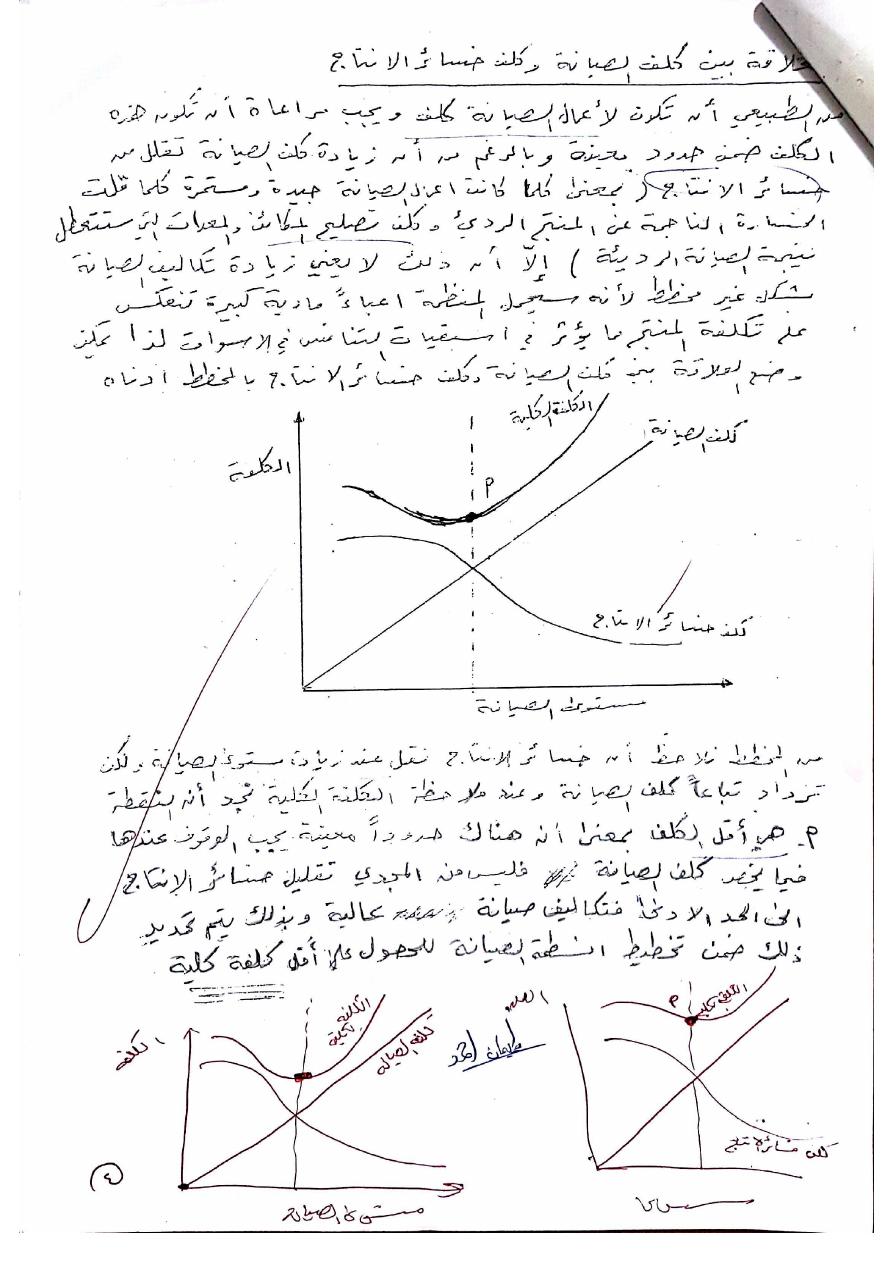 علاقة بين كلف الصيانة وكلف خسائر الانتاج
من الطبيعي أن تكون لأعمال الصيانة كلف ويجب مراعاة أن تكون هذه
الكلف ضمن حدود معينة وبالرغم من أن زيادة كلف الصيانة تقلل من
خسائر الانتاج ( بمعنى كلما كانت اعمال الصيانة جيدة ومستمرة كلما قلت
الخسارة الناجمة عن المنتج الرديء وكلف تصليح المكائن والمعدات التي ستتعطل
نتيجة الصيانة الرديئة ) إلّا أن ذلك لا يعني زيادة تكاليف الصيانة
بشكل غير مخطط لأنه سيحمل المنظمة اعباءً مادية كبيرة تنعكس
على تكلفة المنتج مما يؤثر في اسبقيات التنافس في الاسواق لذا يمكن
وضع العلاقة بين كلف الصيانة وكلف خسائر الانتاج بالمخطط ادناه
الكلفة الكلية
كلف الصيانة
الكلفة
P
كلف خسائر الانتاج
مستوى الصيانة
من المخطط نلاحظ أن خسائر الانتاج تقل عند زيادة مستوى الصيانة ولكن
تزداد تباعاً كلف الصيانة وعند ملاحظة التكلفة الكلية نجد أن النقطة
P هي أقل الكلف بمعنى أن هناك حدوداً معينة يجب الوقوف عندها
فيما يخص كلف الصيانة فليس من المجدي تقليل خسائر الانتاج
الى الحد الادنى فتكاليف صيانة عالية وبذلك يتم تحديد
ذلك ضمن تخطيط انشطة الصيانة للحصول على أقل كلفة كلية
الكلفة
الكلفة الكلية
كلفة الصيانة
مستوى الصيانة
P
الكلفة الكلية
كلف خسائر الانتاج
٤